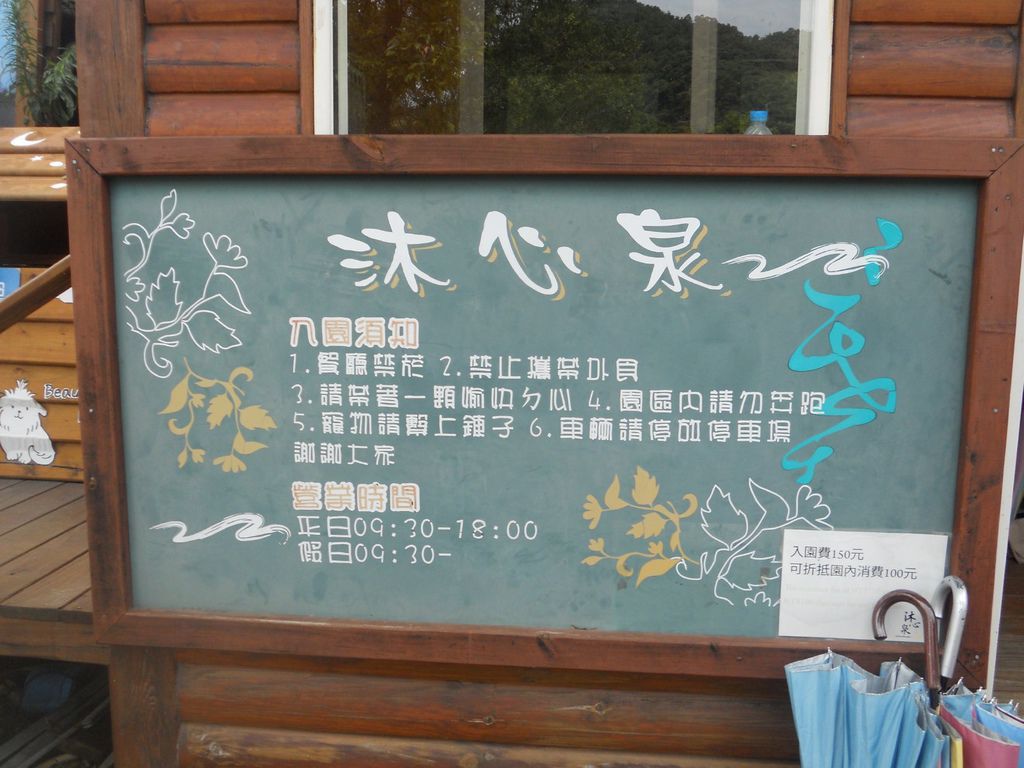 沐心泉
入園須知
1.餐廳禁菸 2.禁止攜帶外食
3.請帶著一顆愉快ㄉ心 4.園區內請勿奔跑
5.寵物請繫上鍊子 6.車輛請停放停車場
謝謝大家
營業時間
平日09:30-18:00
假日09:30-
入園費150元
可折抵園內消費100元
沐心泉
Beau